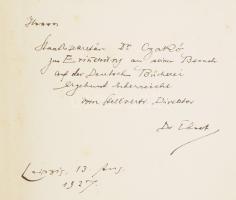 Herrn
Staatssekretär Dr Czakó
zur Erinnerung an seinen Besuch
auf der Deutschen Bücherei
ergebenst überreicht
vom stellvertr. Direktor
Dr
Leipzig, 13. Aug.
1927.